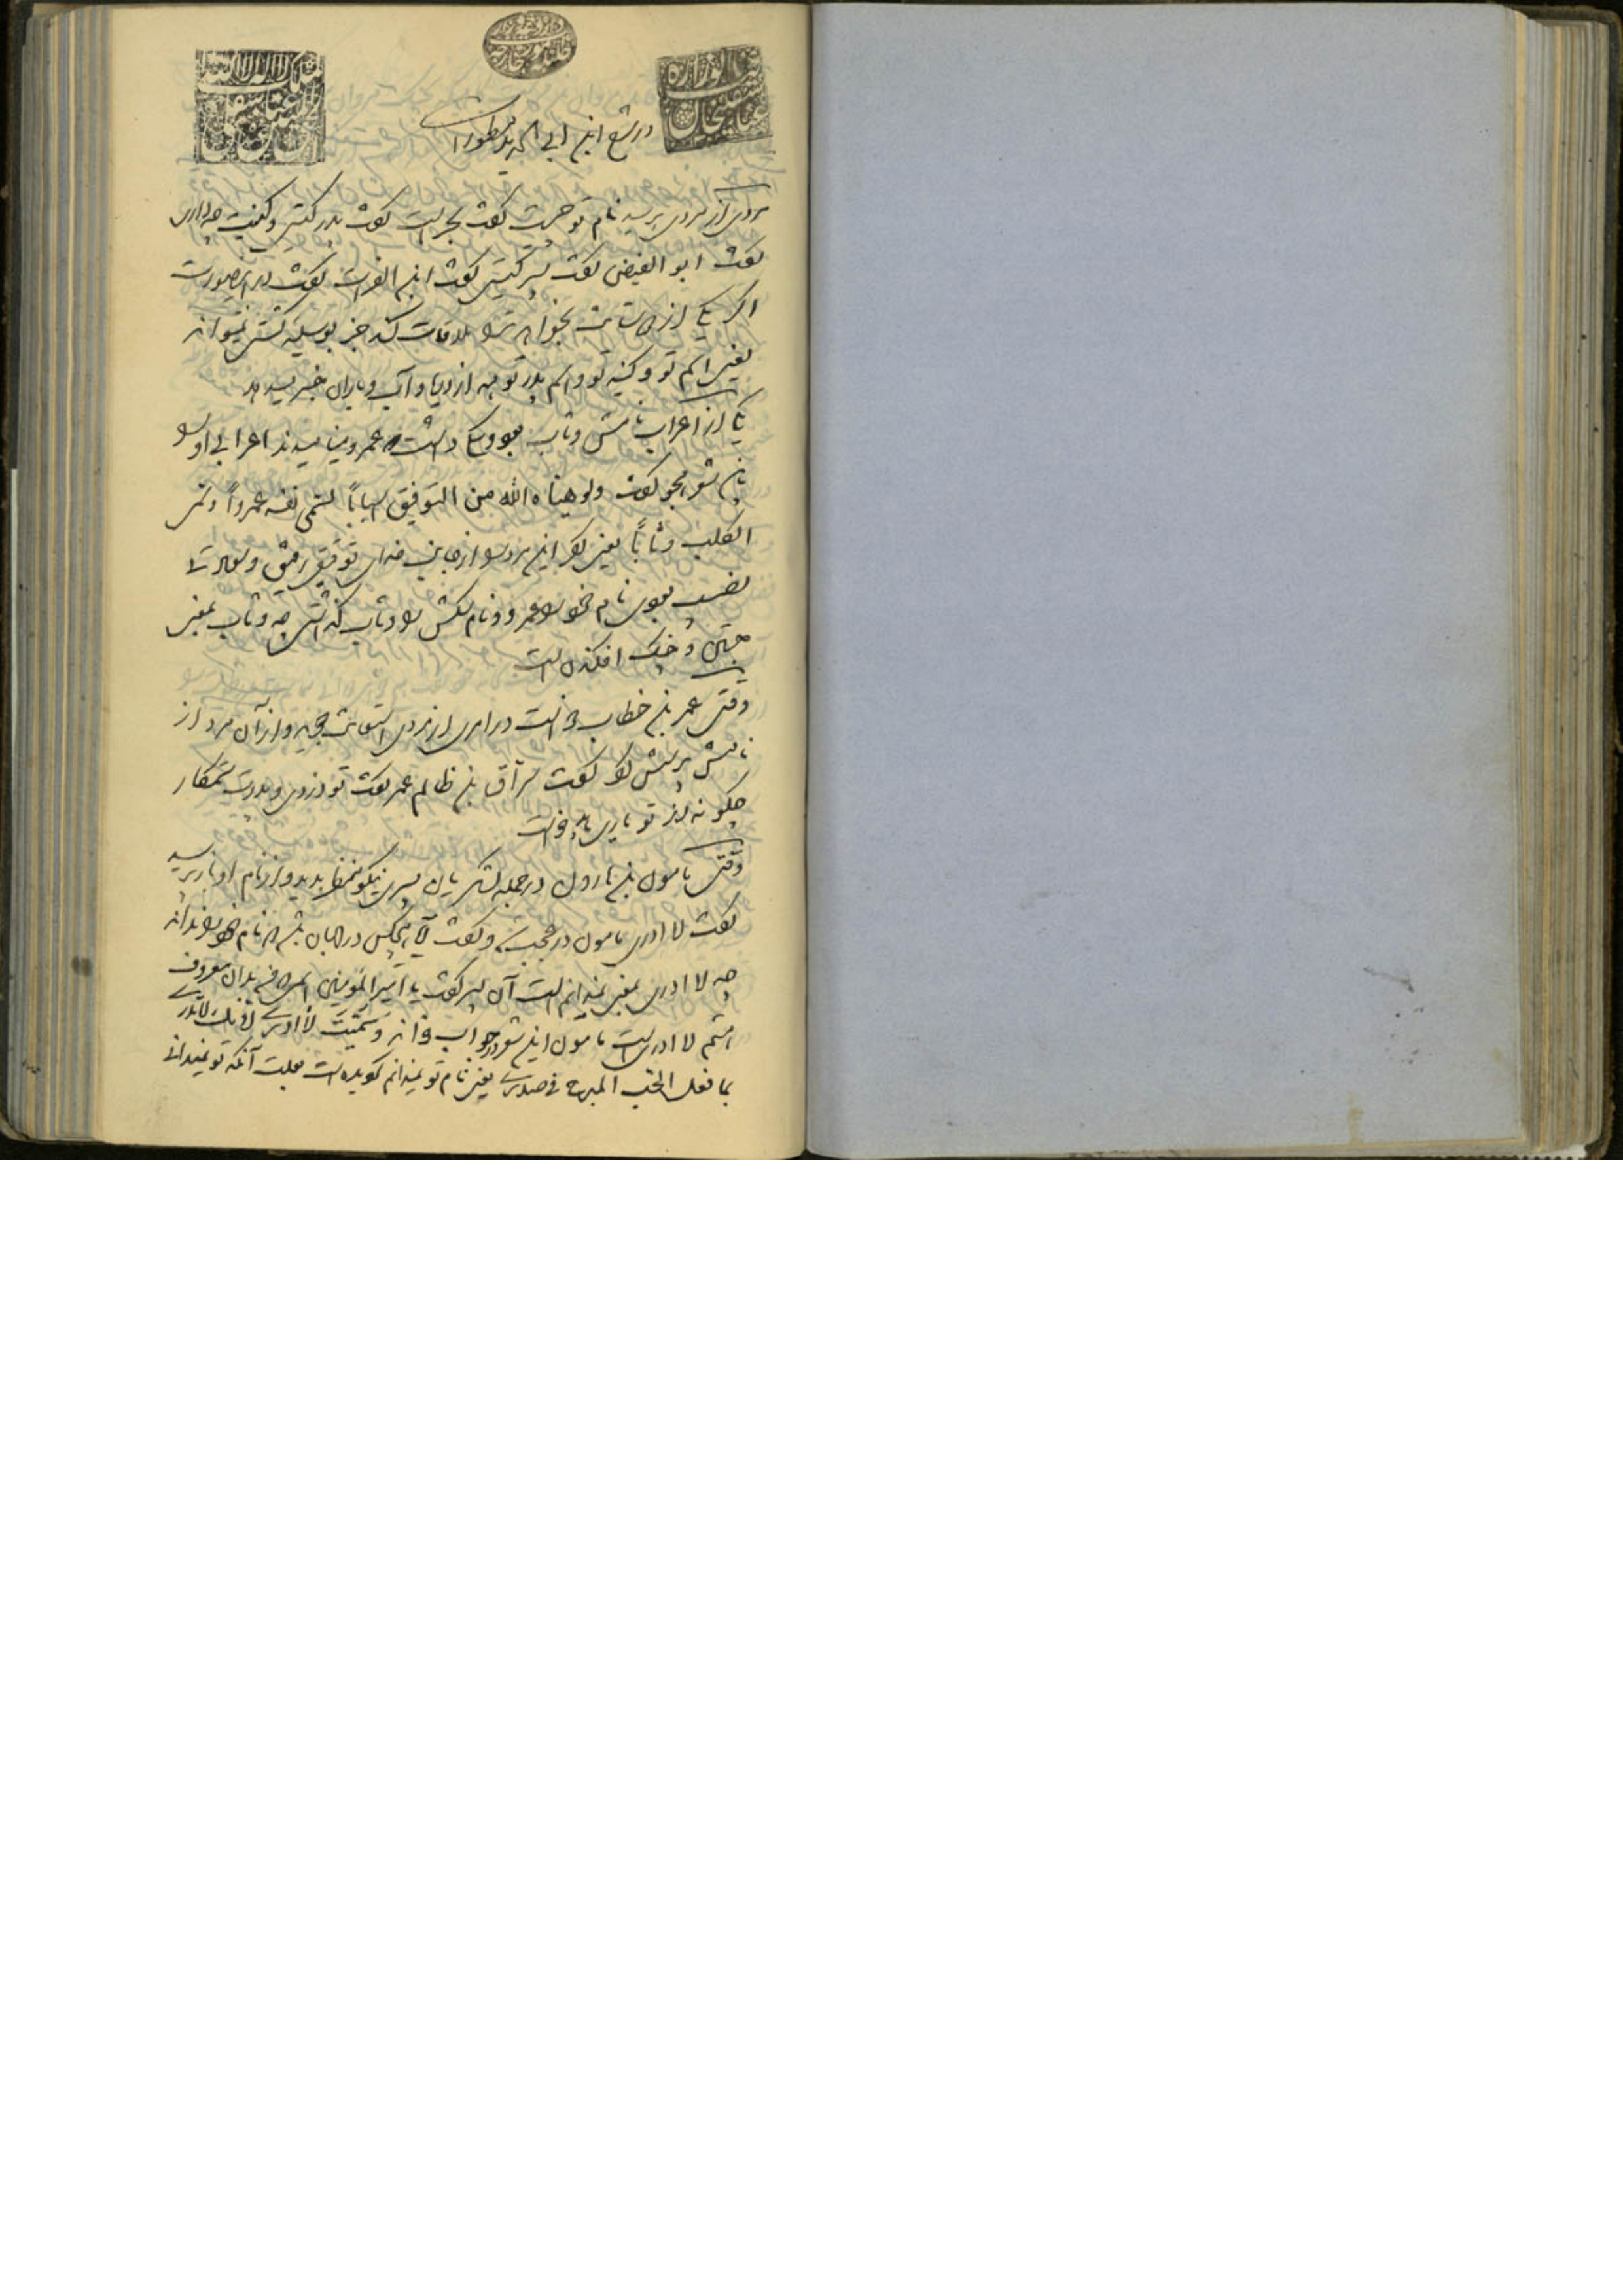 در شرح ابن ابی الحدید مسطور است
مردی از مردی پرسید نام تو چیست گفت بحر است گفت پدر کیستی و کنیت چه داری
گفت ابو الفیض گفت پسر کیستی گفت ابن الفرات گفت در اینصورت
اگر یکی از دوستانت بخواهد ترا ملاقات کند جز بوسیله کشتی نتواند
یعنی اسم تو و کنیه تو و اسم پدر تو همه از دریا و آب و باران خبر میدهد
یکی از اعراب نامش وثاب بود و سگی داشت عمرو مینامیدند اعرابی او را
باین شعر هجو گفت ولو هیئا له الله من التوفیق اسبابا لسمی نفسه عمرواً وسمی
الکلب وثاباً یعنی اگر این مرد را از جانب خدای توفیق رفیق و سعادت
نصیب بودی نام خود را عمرو و نام سگش را وثاب گذاشتی چه وثاب بمعنی
جستن و خیک افکندن است
وقتی عمر بن خطاب خواست در امری از مردی استعانت جوید و از آن مرد از
نامش پرسش کرد گفت سراق بن ظالم عمر گفت تو دزدی و پدرت ستمکار
چگونه از تو یاری باید خواست
وقتی مامون بن هارون در جمله لشکریان پسری نیکو منظر بدید و از نام او باز پرسید
گفت لا ادری مامون در عجب شد و گفت آیا هیچکس در جهان باشد که نام خود را نداند
چه لا ادری بمعنی نمیدانم است آن پسر گفت یا امیر المؤمنین اسمی که من بدان معروف
هستم لا ادری است مامون این شعر در جواب خواند وَسُمّیتَ لا ادری لانک لا تدری
بما فعل الحب المبرح فی صدری یعنی نام تو نمیدانم گردیده است بعلت آنکه تو نمیدانی